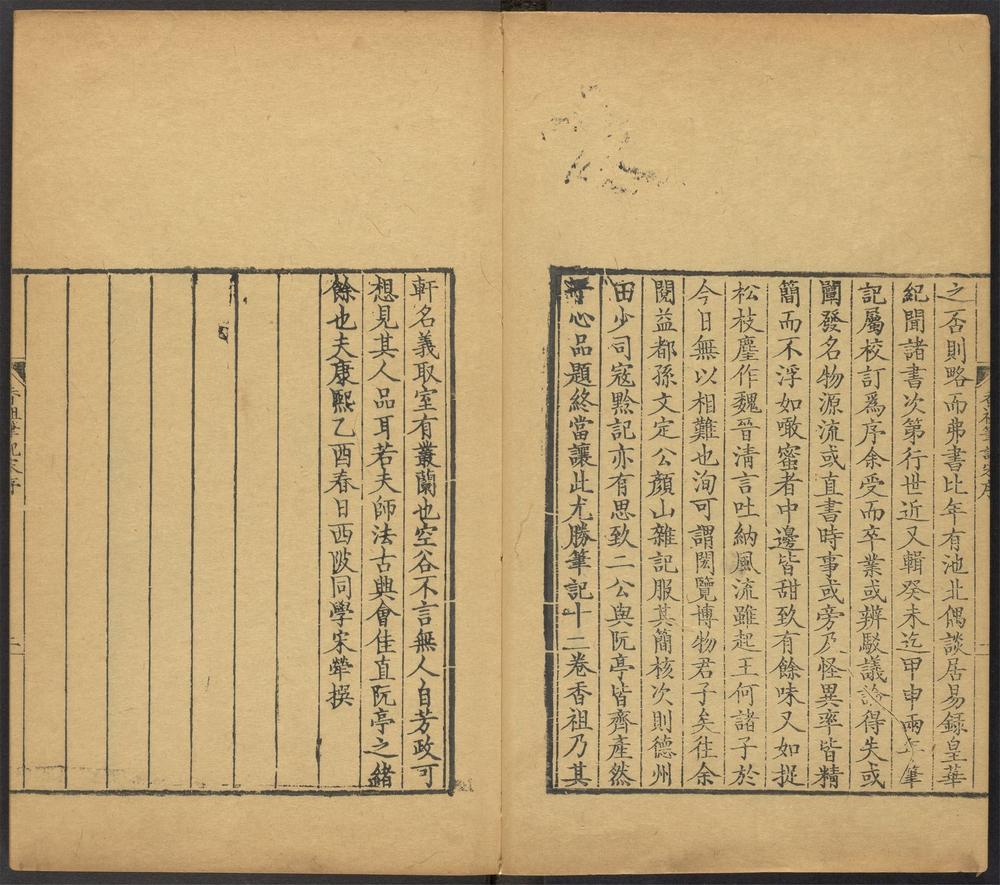 之否則略而弗書比年有池北偶談居易錄皇華
紀聞諸書次第行世近又輯癸未迄甲申兩年筆
記屬校訂爲序余受而卒業或辨駁議論得失或
闡發名物源流或直書時事或旁及怪異率皆精
簡而不浮如噉蜜者中邊皆甜致有餘味又如捉
松枝麈作魏晉清言吐納風流雖起王何諸子於
今日無以相難也洵可謂閎覽博物君子矣往余
閱益都孫文定公顏山雜記服其簡核次則德州
田少司寇黔記亦有思致二公與阮亭皆齊產然
心品題終當讓此尤勝筆記十二卷香祖乃其
軒名義取室有叢蘭也空谷不言無人自芳政可
想見其人品耳若夫師法古典會佳直阮亭之緒
餘也夫康熙乙酉春日西陂同學宋犖撰
香祖筆記宋序
二